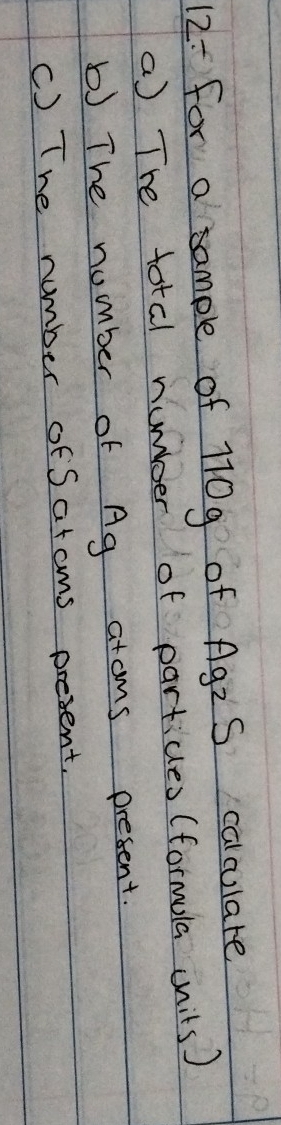 12:- for a sample of 110g of Ag2S calculate
a) The total number of particles (formula units)
b) The number of Ag atoms present.
c) The number of S atoms present.